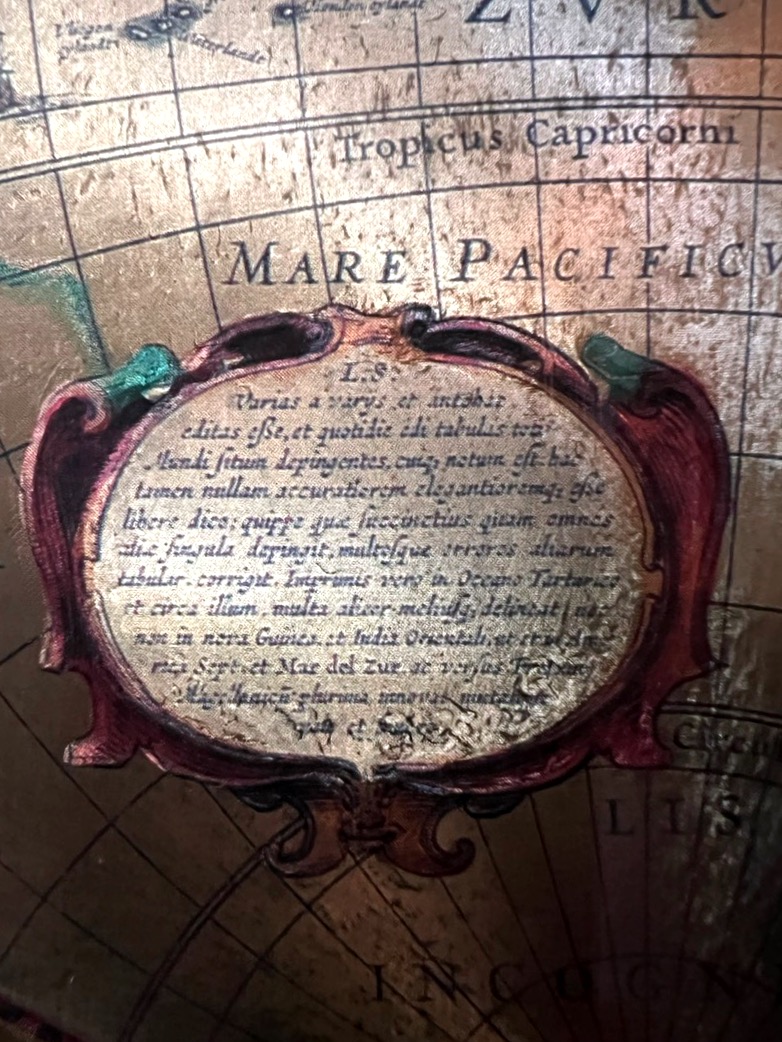 Vliegen eylandt
Waterlandt
Z V R
Tropicus Capricorni
MARE PACIFICV
L.S.
Varias a varys, et antehac
editas esse, et quotidie edi tabulas totiꝰ
Mundi situm depingentes, cuiq; notum est. hac
tamen nullam accuratiorem elegantioremq; esse
libere dico; quippe quæ succinctius quam omnes
aliæ singula depingit, multosque errores aliarum
tabular. corrigit. Imprimis vero in Oceano Tartarico
et circa illum, multa aliter meliusq; delineat, nec
non in nova Guinea, et India Orientali, ut et in Ame
rica Sept. et Mar del Zur, ac versus Fretum
Magellanicũ plurima innovat
et
Circul
LIS
INCOGN